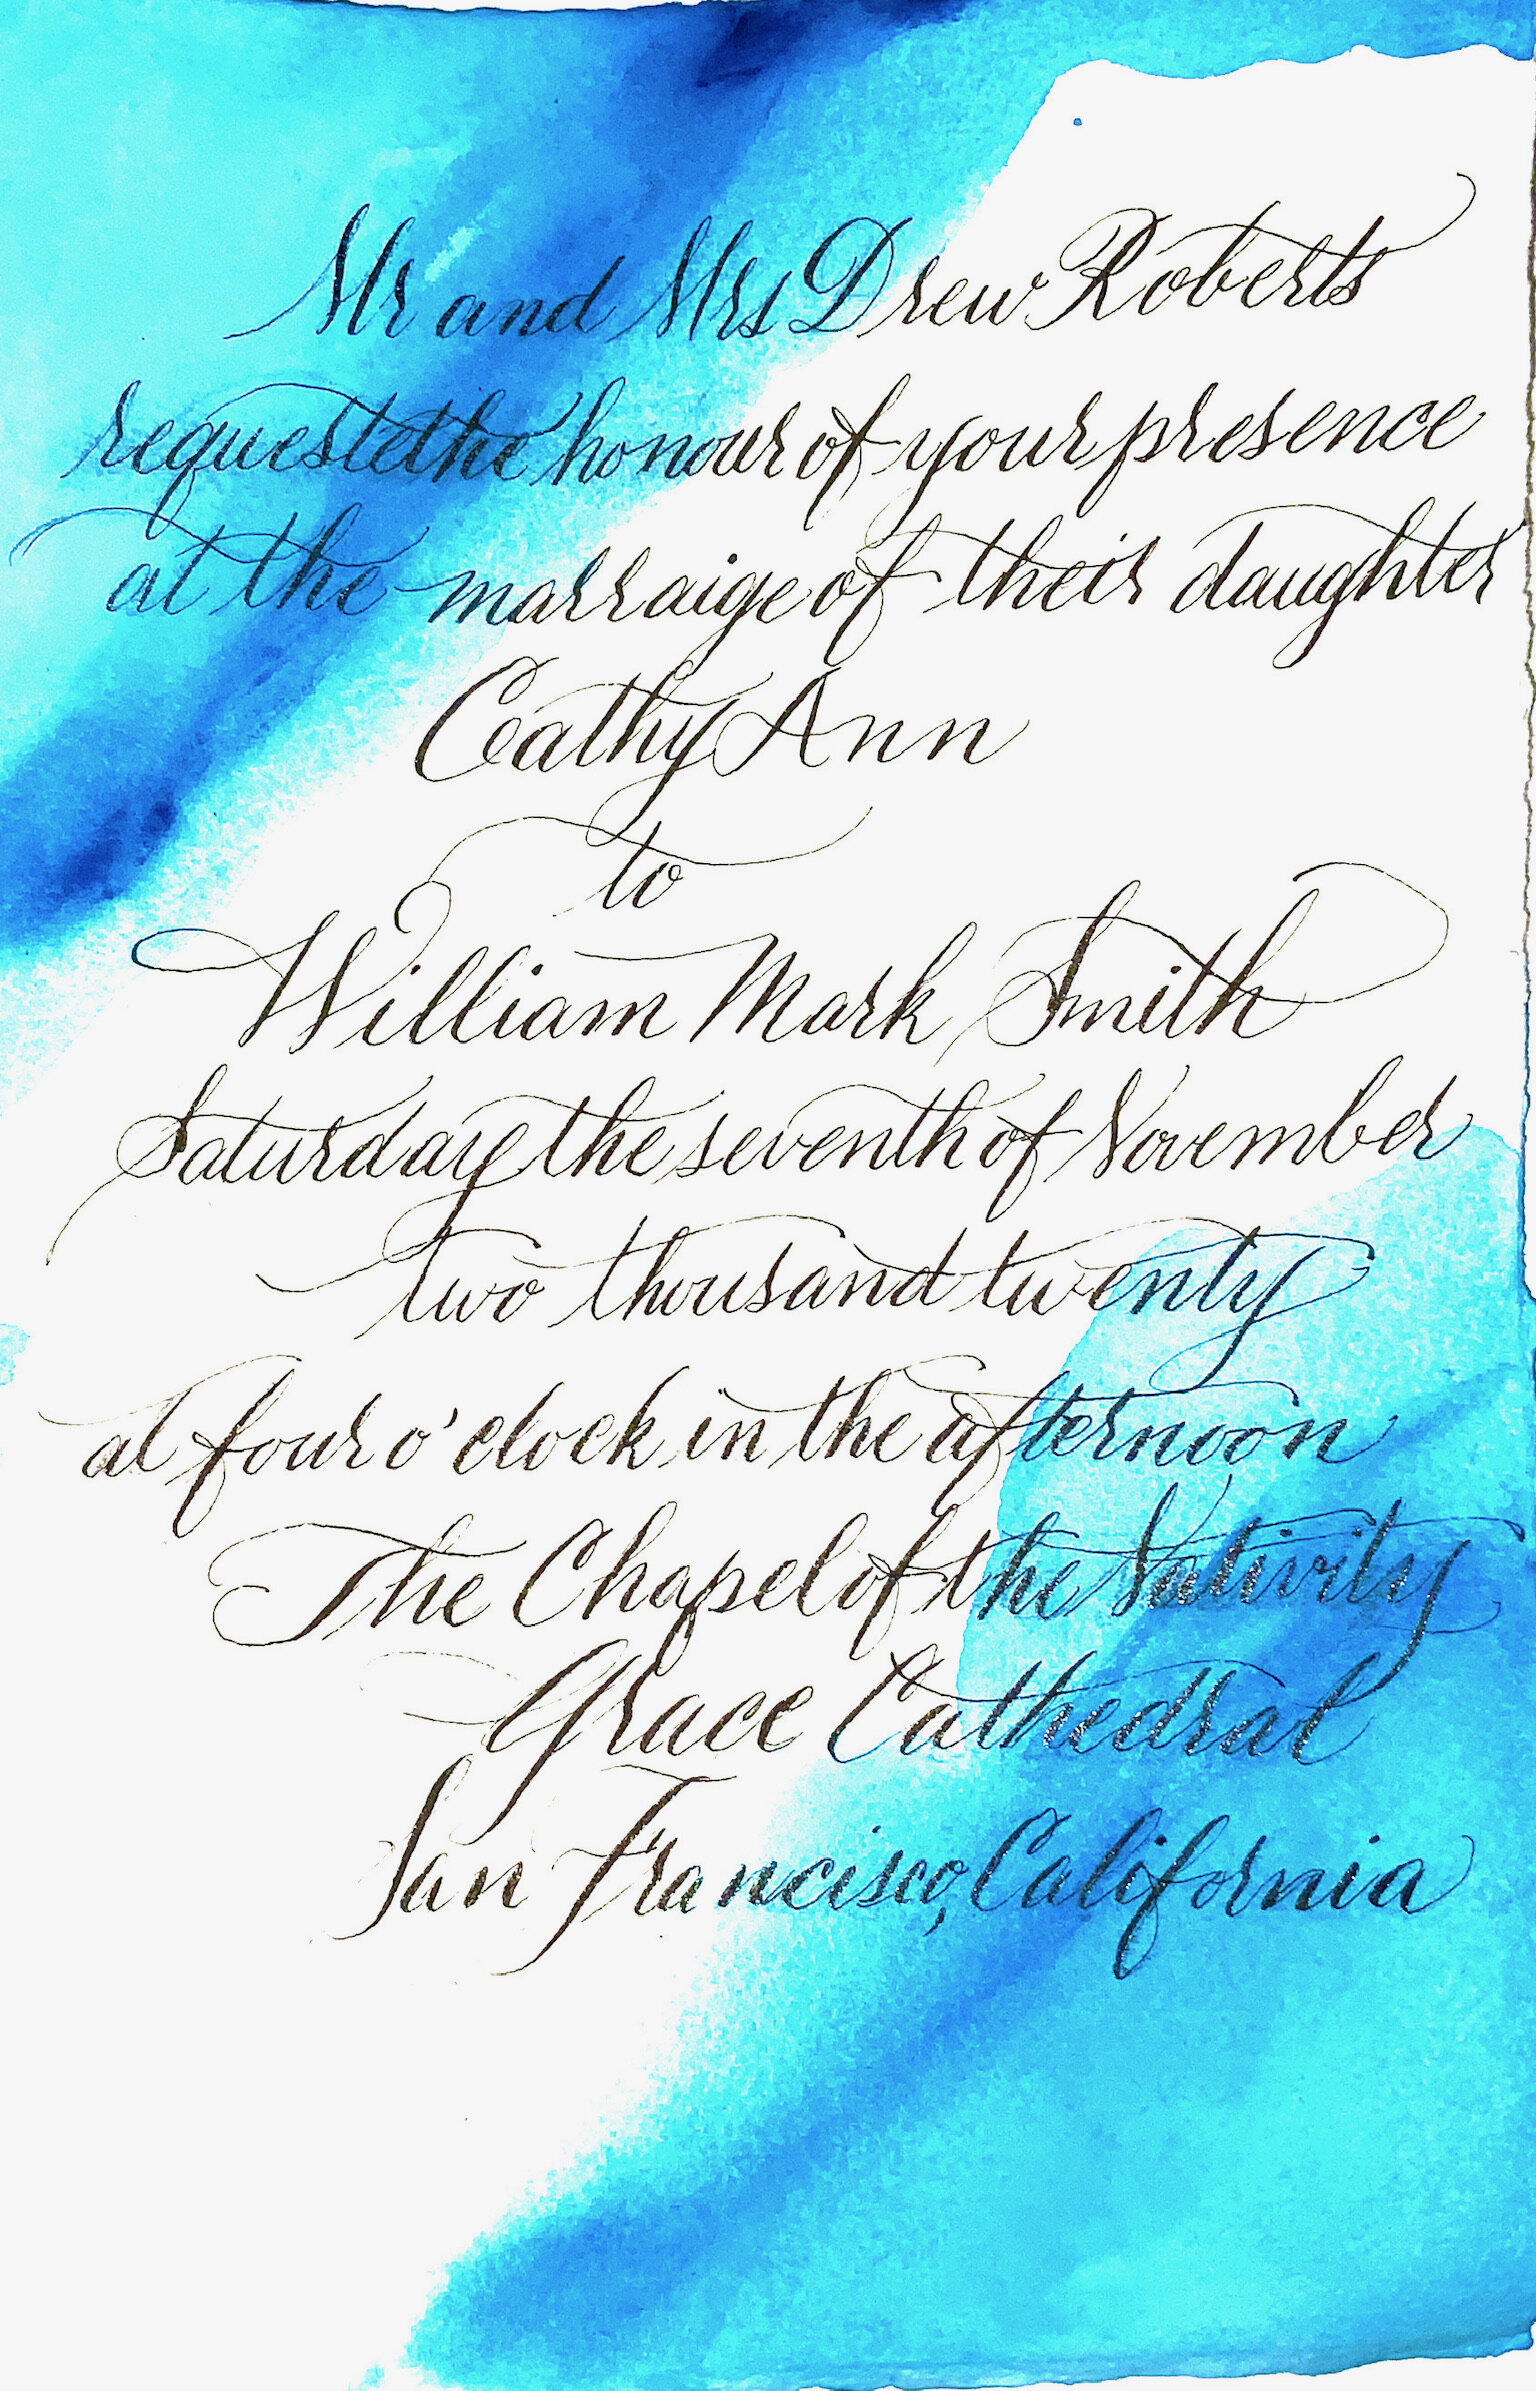 Mr and Mrs Drew Roberts
requestethe honour of your presence
at the marraige of their daughter
Cathy Ann
to
William Mark Smith
Saturday the seventh of November
two thousand twenty
at four o'clock in the afternoon
The Chapel of the Nativity
Grace Cathedral
San Francisco, California